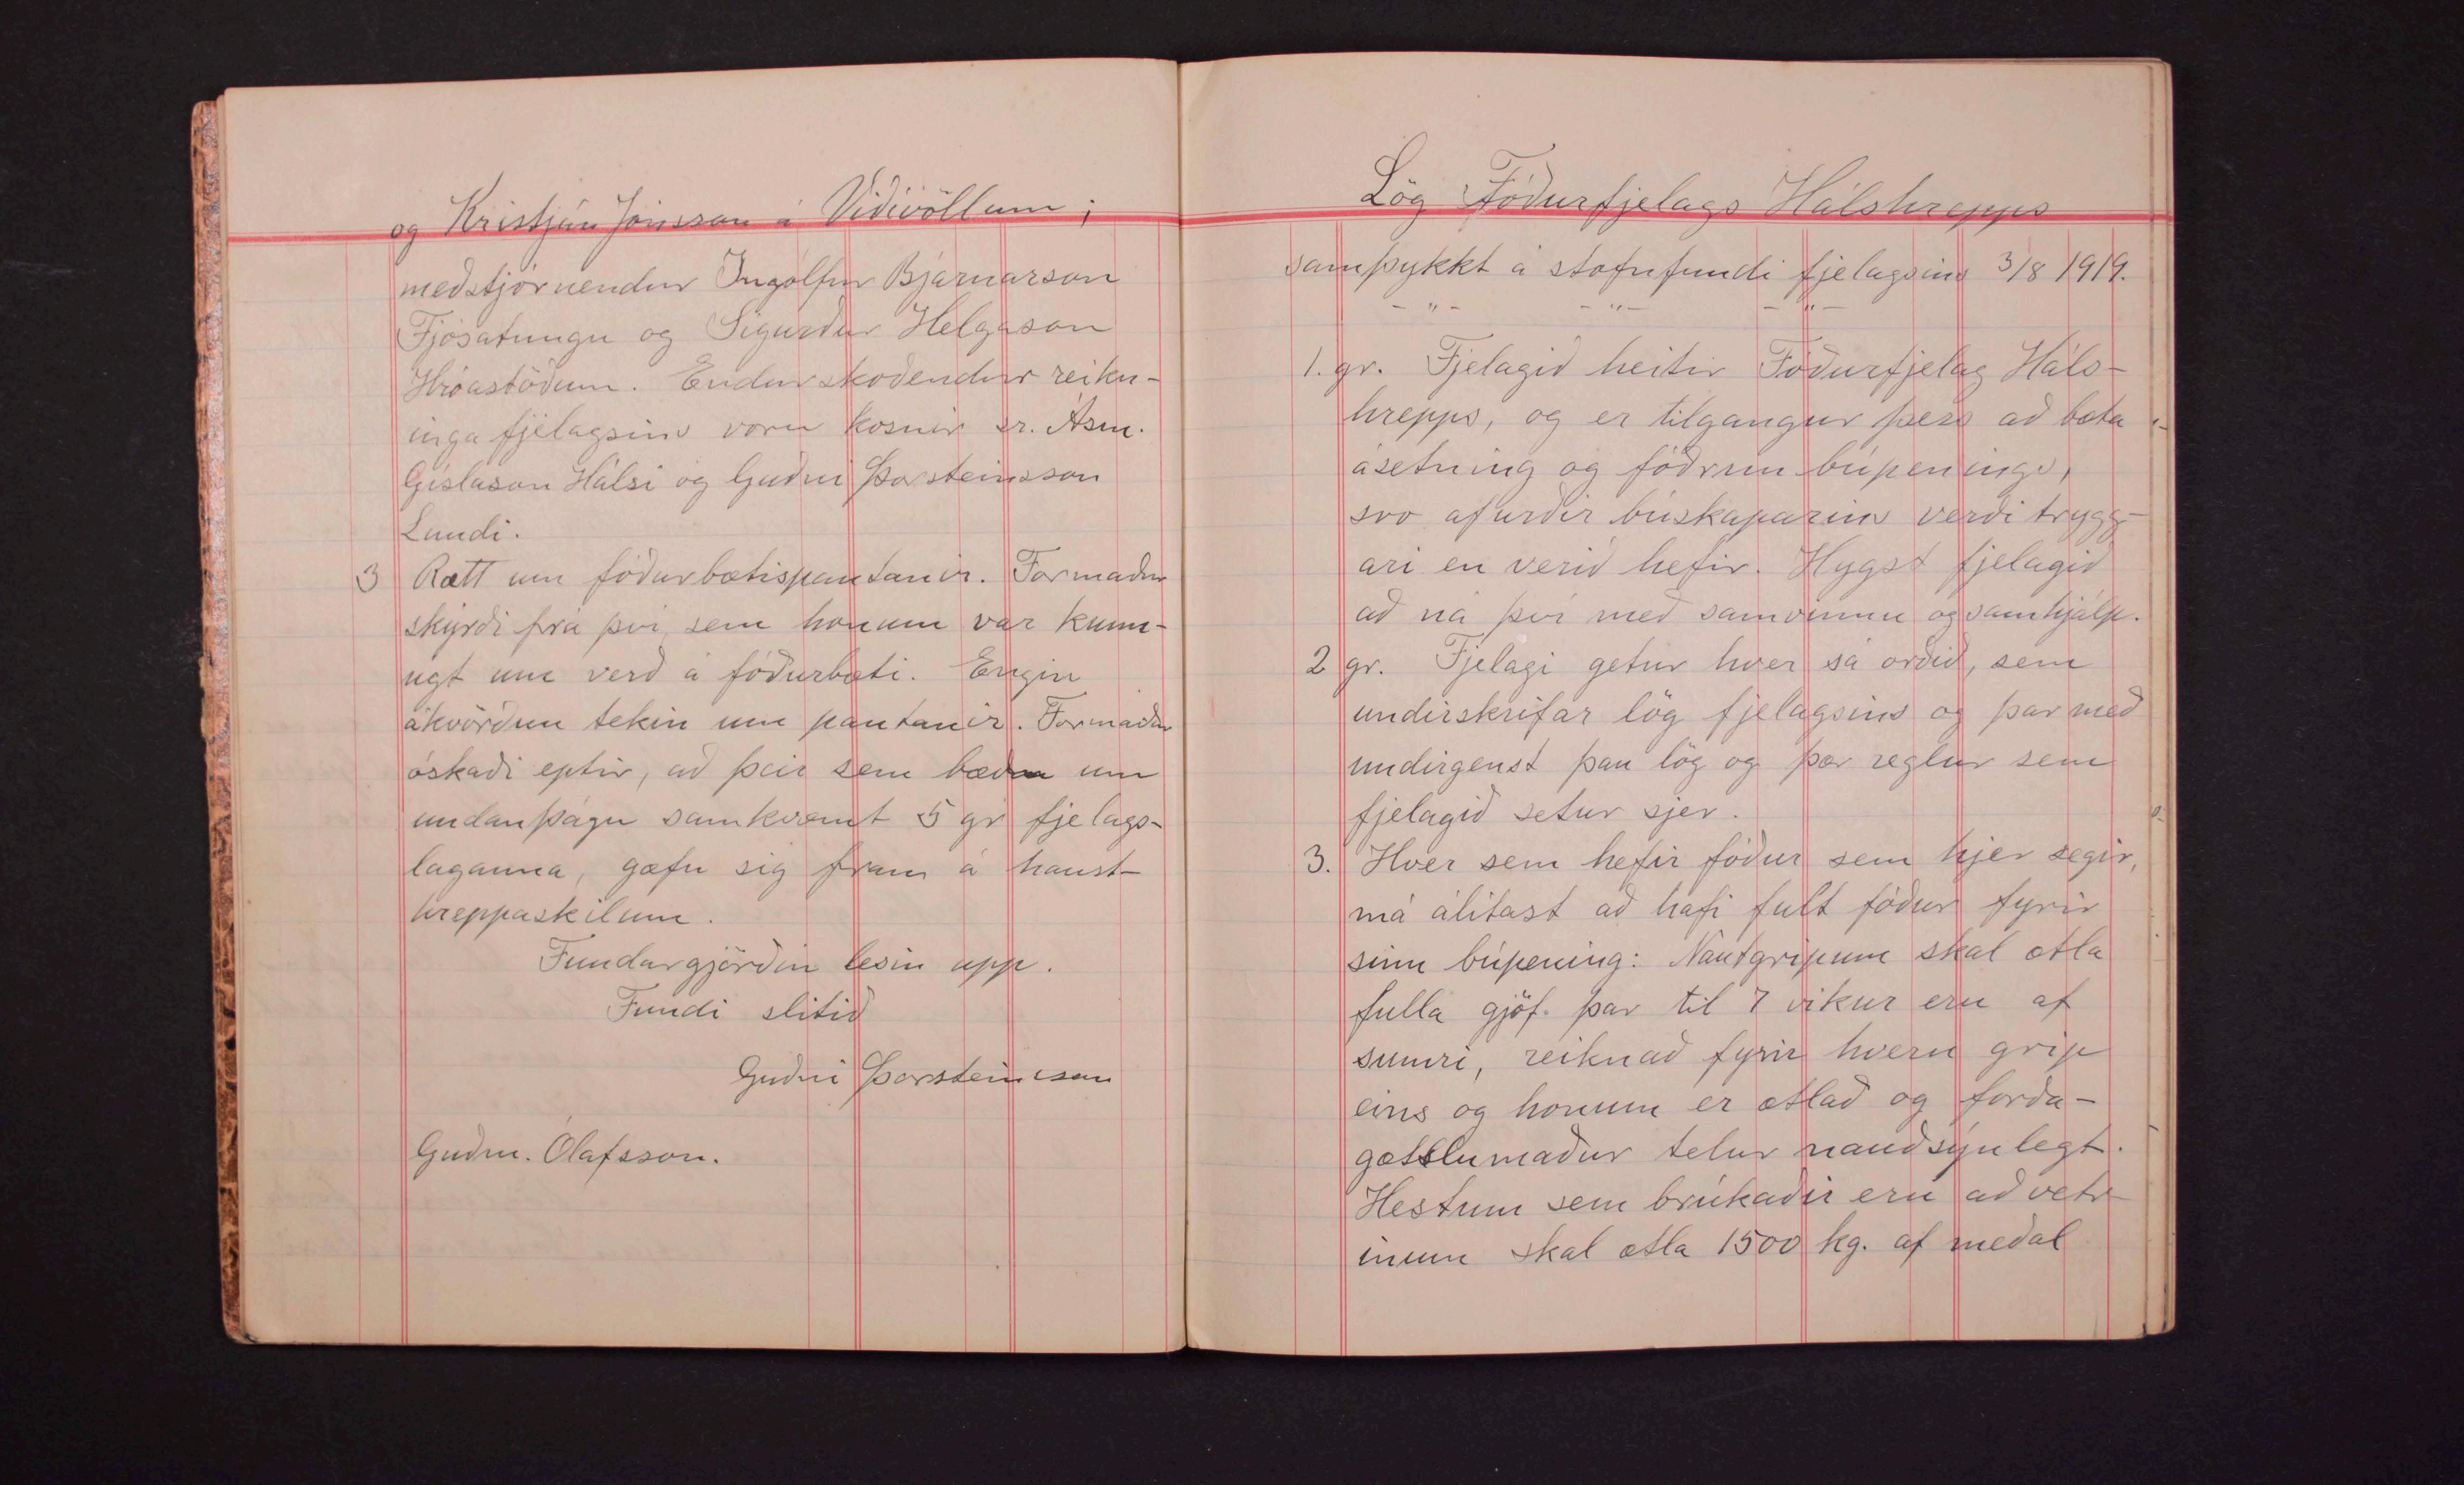 og Kristján Jónsson á Víðivöllum;
meðstjórnendur Ingólfur Bjarnarson
Fjósatungu og Sigurður Helgason
Hróastöðum. Endurskoðendur reikn-
inga fjelagsins voru kosnir sr. Ásm.
Gíslason Hálsi og Guðni Þorsteinsson
Lundi.
3 Rætt um fóðurbætispantanir. Formaður
skýrði frá því sem honum var kunn-
ugt um verð á fóðurbæti. Engin
ákvörðun tekin um pantanir. Formaður
óskaði eptir, að þeir sem bæða um
undanþágu samkvæmt 5 gr fjelags-
laganna, gæfu sig fram á haust-
hreppaskilum.
Fundargjörðin lesin upp.
Fundi slitið
Guðni Þorsteinsson
Guðm. Ólafsson.
Lög Fóðurfjelags Hálshrepps
samþykkt á stofnfundi fjelagsins 3/8 1919.
- " - - " - - " -
1. gr. Fjelagið heitir Fóðurfjelag Háls-
hrepps, og er tilgangur þess að bæta
ásetning og fóðrun búpenings,
svo afurðir búskaparins verði trygg-
ari en verið hefir. Hygst fjelagið
að ná því með samvinnu og samhjálp.
2 gr. Fjelagi getur hver sá orðið, sem
undirskrifar lög fjelagsins og þar með
undirgenst þau lög og þær reglur sem
fjelagið setur sjer.
3. Hver sem hefir fóður sem hjer segir,
má álítast að hafi fult fóður fyrir
sinn búpening: Nautgripum skal ætla
fulla gjöf þar til 7 vikur eru af
sumri, reiknað fyrir hvern grip
eins og honum er ætlað og forða-
gætslumaður telur nauðsýnlegt.
Hestum sem brúkaðir eru að vetr-
inum skal ætla 1500 kg. af meðal